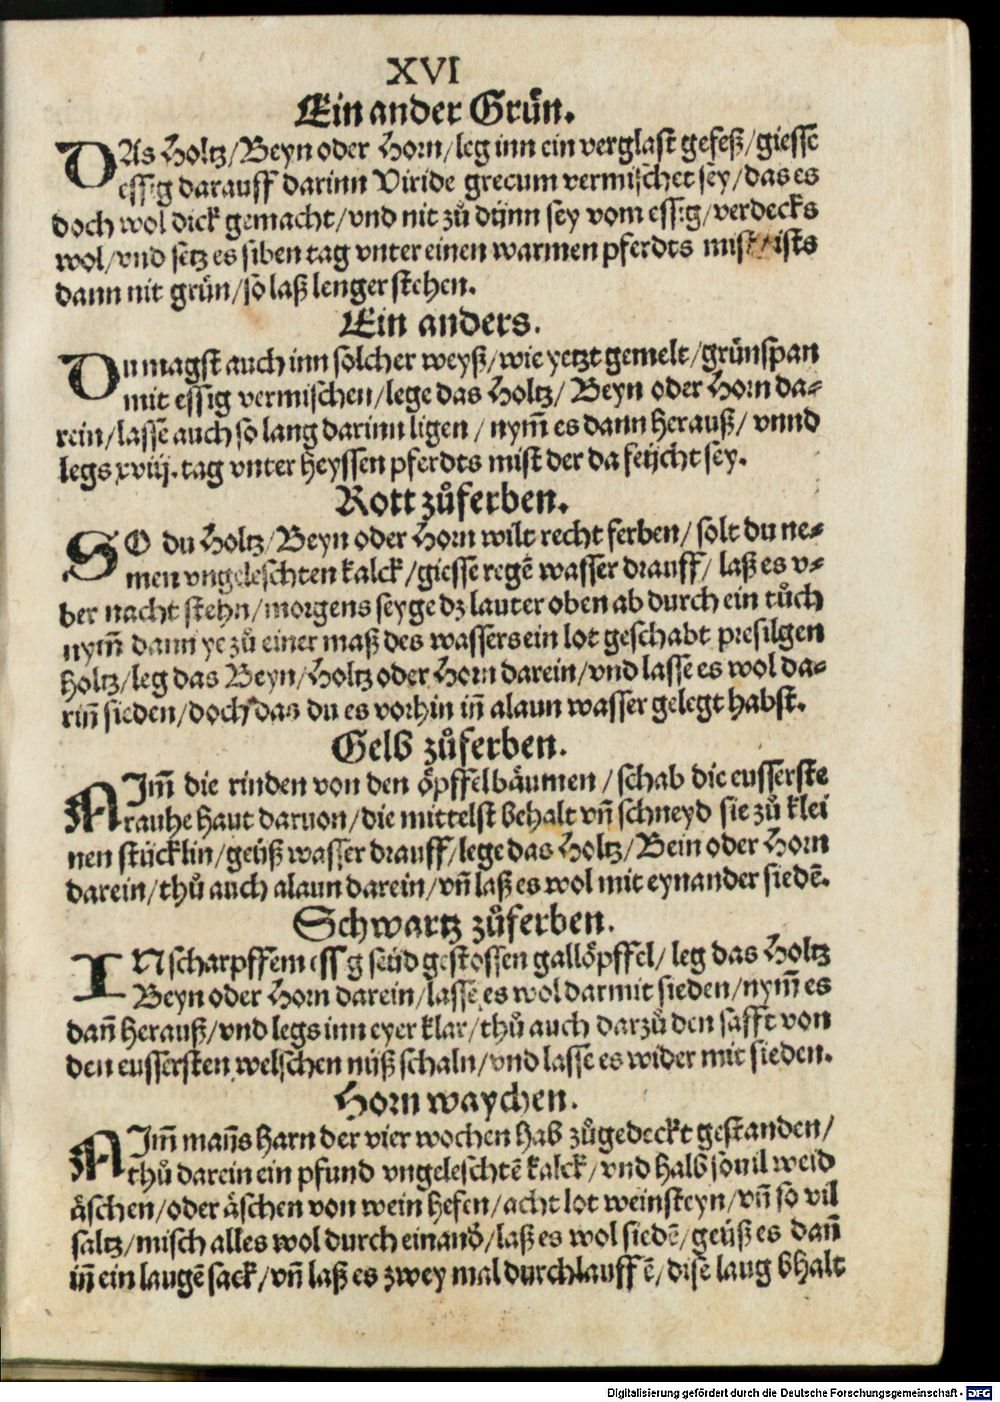 XVI
Ein ander Gruͤn.
DAs Holtz/Beyn oder Horn/leg inn ein verglast gefeß/giesse
essig darauff darinn Viride grecum vermischet sey/das es
doch wol dick gemacht/vnd nit zů dünn sey vom essig/verdecks
wol/vnd setz es siben tag vnter einen warmen pferdts mist/ists
dann nit gruͤn/so laß lenger stehen.
Ein anders.
DU magst auch inn solcher weyß/wie yetzt gemelt/gruͤnspan
mit essig vermischen/lege das Holtz/Beyn oder Horn da-
rein/lasse auch so lang darinn ligen/nym̃ es dann herauß/vnnd
legs xviij. tag vnter heyssen pferdts mist der da feücht sey.
Rott zůferben.
SO du Holtz/Beyn oder Horn wilt recht ferben/solt du ne-
men vngeleschten kalck/giesse regẽ wasser drauff/laß es v-
ber nacht stehn/morgens seyge dz lauter oben ab durch ein tůch
nym̃ dann ye zů einer maß des wassers ein lot geschabt presilgen
holtz/leg das Beyn/Holtz oder Horn darein/vnd lasse es wol da-
riñ sieden/doch das du es vorhin iñ alaun wasser gelegt habst.
Gelb zůferben.
NIm̃ die rinden von den oͤpffelbaͤumen/schab die eusserste
rauhe haut daruon/die mittelst behalt vñ schneyd sie zů klei
nen stücklin/geüß wasser drauff/lege das Holtz/Bein oder Horn
darein/thů auch alaun darein/vñ laß es wol mit eynander siedẽ.
Schwartz zůferben.
IN scharpffem essig seüd gestossen galloͤpffel/leg das Holtz
Beyn oder Horn darein/lasse es wol darmit sieden/nym̃ es
dañ herauß/vnd legs inn eyer klar/thů auch darzů den safft von
den eussersten welschen nüß schaln/vnd lasse es wider mit sieden.
Horn waychen.
NIm̃ mañs harn der vier wochen hab zůgedeckt gestanden/
thů darein ein pfund vngeleschtẽ kalck/vnd halb souil weid
aͤschen/oder aͤschen von wein hefen/acht lot weinsteyn/vñ so vil
saltz/misch alles wol durch einand̛/laß es wol siedẽ/geüß es dañ
iñ ein laugẽ sack/vñ laß es zwey mal durchlauffẽ/dise laug bhalt
Digitalisierung gefördert durch die Deutsche Forschungsgemeinschaft - DFG